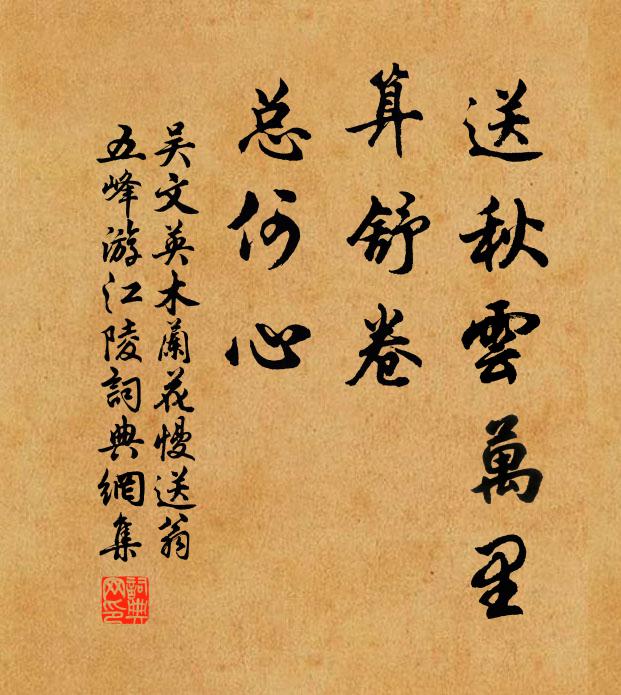 送秋雲萬里
算舒卷
总何心
吴文英木蘭花慢送翁
五峰游江陵詞典網集
詞典
网印